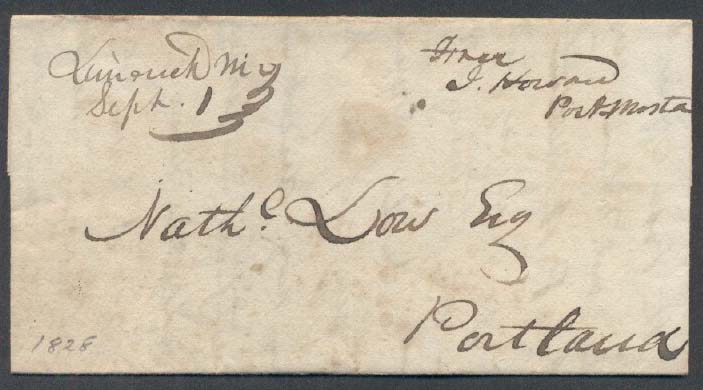 Limerick Me
Sept. 1
Free
J. Howard
Post Masta
Nathl. Low Esq
Portland
1828